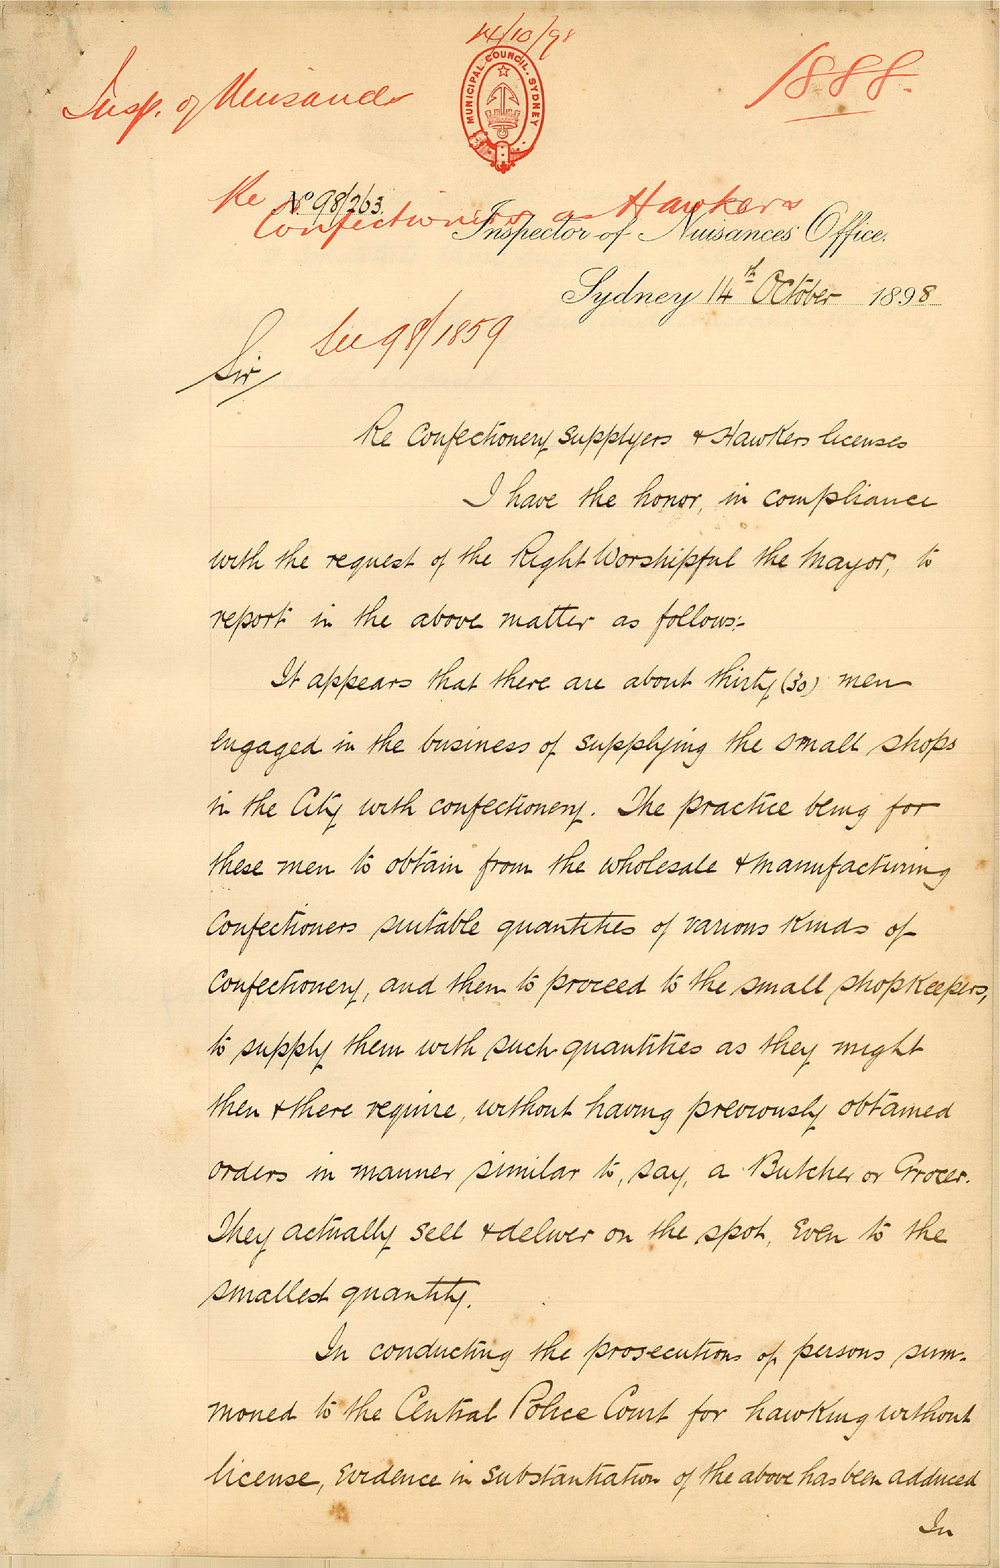 14/10/98
Insp. of Nuisances
MUNICIPAL COUNCIL. SYDNEY
1888.
Re
Confectioners as Hawkers
No 98/263.
Inspector of Nuisances Office.
Sydney 14th October 1898
See 98/1859
Sir
Re Confectionery Supplyers & Hawkers licenses
I have the honor, in compliance
with the request of the Right Worshipful the Mayor, to
report in the above matter as follows:-
It appears that there are about thirty (30) men
engaged in the business of supplying the small shops
in the City with confectionery. The practice being for
these men to obtain from the wholesale & manufacturing
Confectioners suitable quantities of various kinds of
Confectionery, and then to proceed to the small shopkeepers,
to supply them with such quantities as they might
then & there require, without having previously obtained
orders in manner similar to, say, a Butcher or Grocer.
They actually sell & deliver on the spot, even to the
smallest quantity.
In conducting the prosecutions of persons sum-
moned to the Central Police Court for hawking without
license, evidence in substantiation of the above has been adduced
In